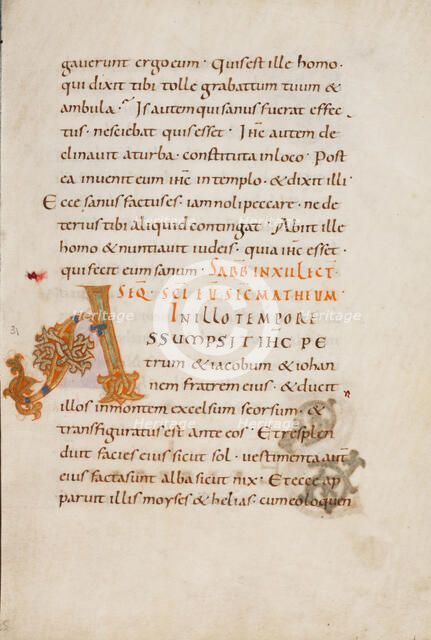 gaverunt ergo eum · Quis est ille homo ·
qui dixit tibi tolle grabattum tuum &
ambula · Is autem qui sanus fuerat effec
tus · nesciebat quis esset · ihc autem de
clinavit a turba · constituta in loco · Post
ea invenit eum ihc in templo · & dixit illi
Ecce sanus factus es · iam noli peccare · ne de
terius tibi aliquid contingat · Abiit ille
homo & nuntiavit iudeis · quia ihc esset ·
qui fecit eum sanum · SABB IN XII LECT
SEQ · SCI EU SEC MATHEUM ·
IN ILLO TEMPORE
ASSUMPSIT IHC PE
trum & iacobum & iohan
nem fratrem eius · & ducit
illos in montem excelsum seorsum · &
transfiguratus est ante eos · Et resplen
duit facies eius sicut sol · vestimenta aut
eius facta sunt alba sicut nix · Et ecce ap
paruit illis moyses & helias · cum eo loquen
31
Heritage
Heritage
Heritage
Heritage
Heritage
Heritage